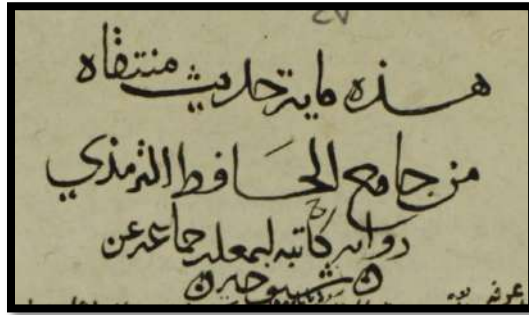 هذه ماية حديث منتقاه
من جامع الحافظ الترمذي
رواية كاتبه جماعة عن
شيوخه